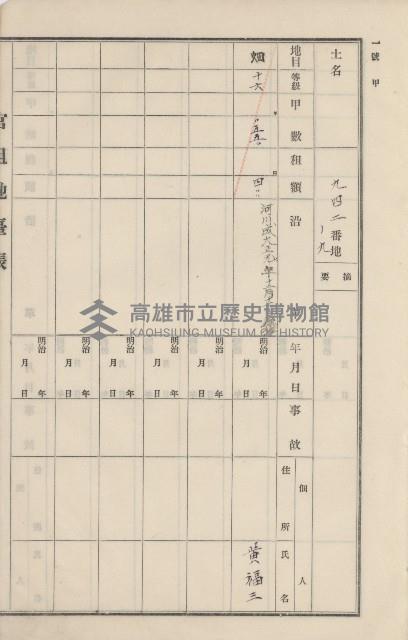 一號甲
土名
九四二番地
ノ九
摘要
地目
等級
甲數
租額
沿
年月日
事故
佃人
住所
氏名
畑
十六
五五
四
河川成大正元年十二月
明治年月日
黃福三
明治年月日
明治年月日
明治年月日
明治年月日
明治年月日
官租地臺帳
高雄市立歷史博物館
KAOHSIUNG MUSEUM OF HISTORY